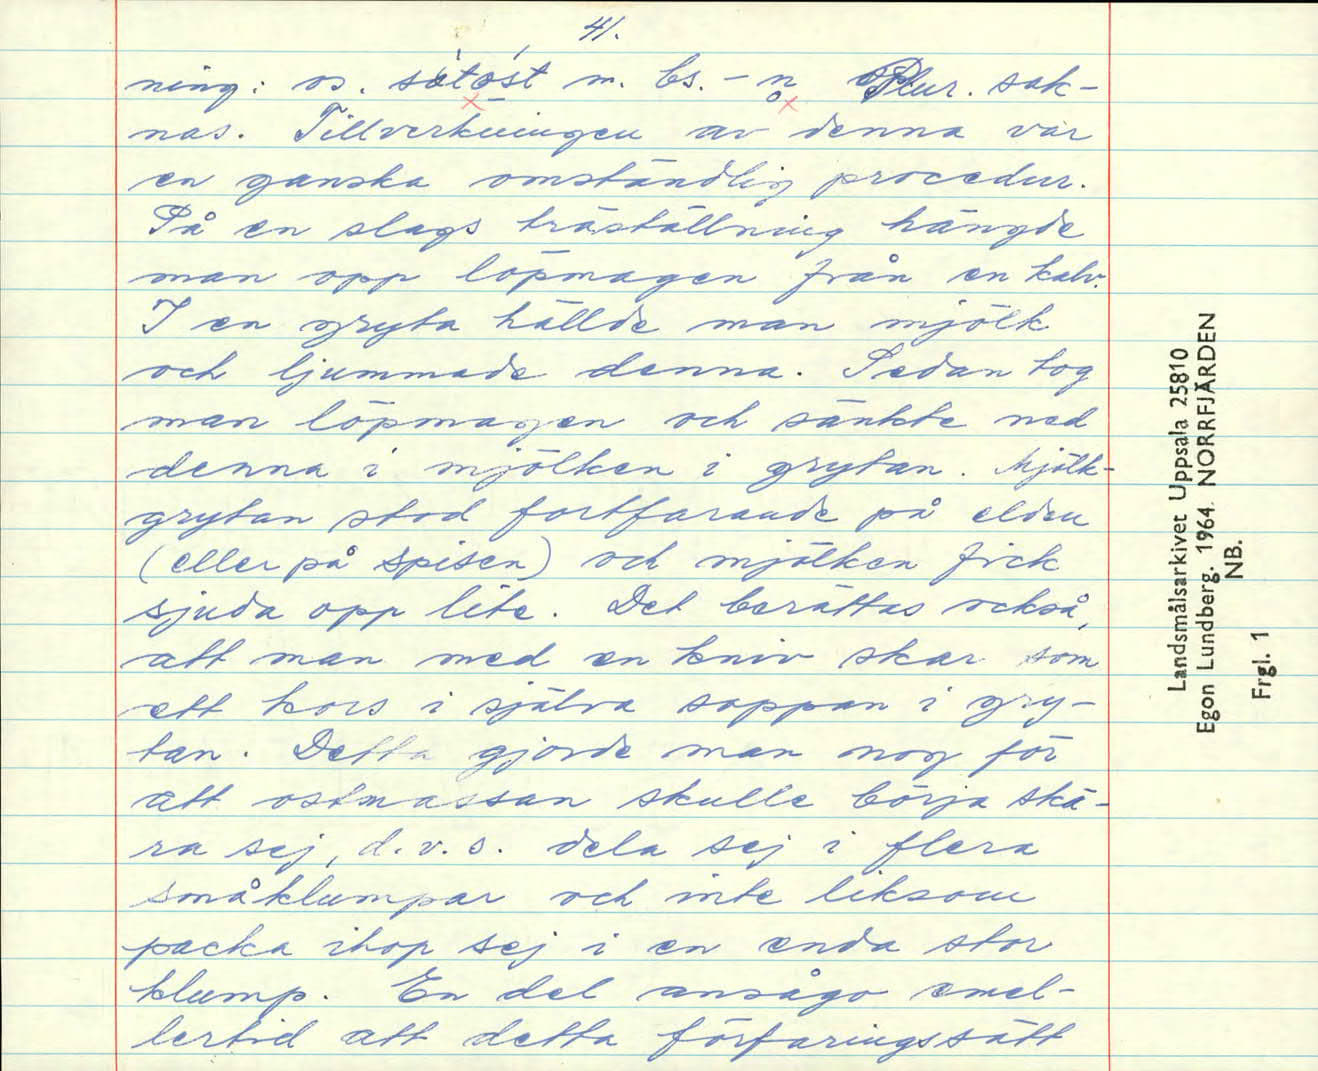 41.
ning: os. sötost m. bs. - n Plur. sak-
nas. Tillverkningen av denna var
en ganska omständlig procedur.
På en slags träställning hängde
man opp löpmagen från en kalv.
I en gryta hällde man mjölk
och ljummade denna. Sedan tog
man löpmagen och sänkte ned
denna i mjölken i grytan. Mjölk-
grytan stod fortfarande på elden
(eller på spisen) och mjölken fick
sjuda opp lite. Det berättas också,
att man med en kniv skar som
ett kors i själva soppan i gry-
tan. Detta gjorde man nog för
att ostmassan skulle börja skä-
ra sej, d.v.s. dela sej i flera
småklumpar och inte liksom
packa ihop sej i en enda stor
klump. En del ansågo emel-
lertid att detta förfaringssätt
Landsmålsarkivet Uppsala 25810
Egon Lundberg. 1964. NORRFJÄRDEN
NB.
Frgl. 1